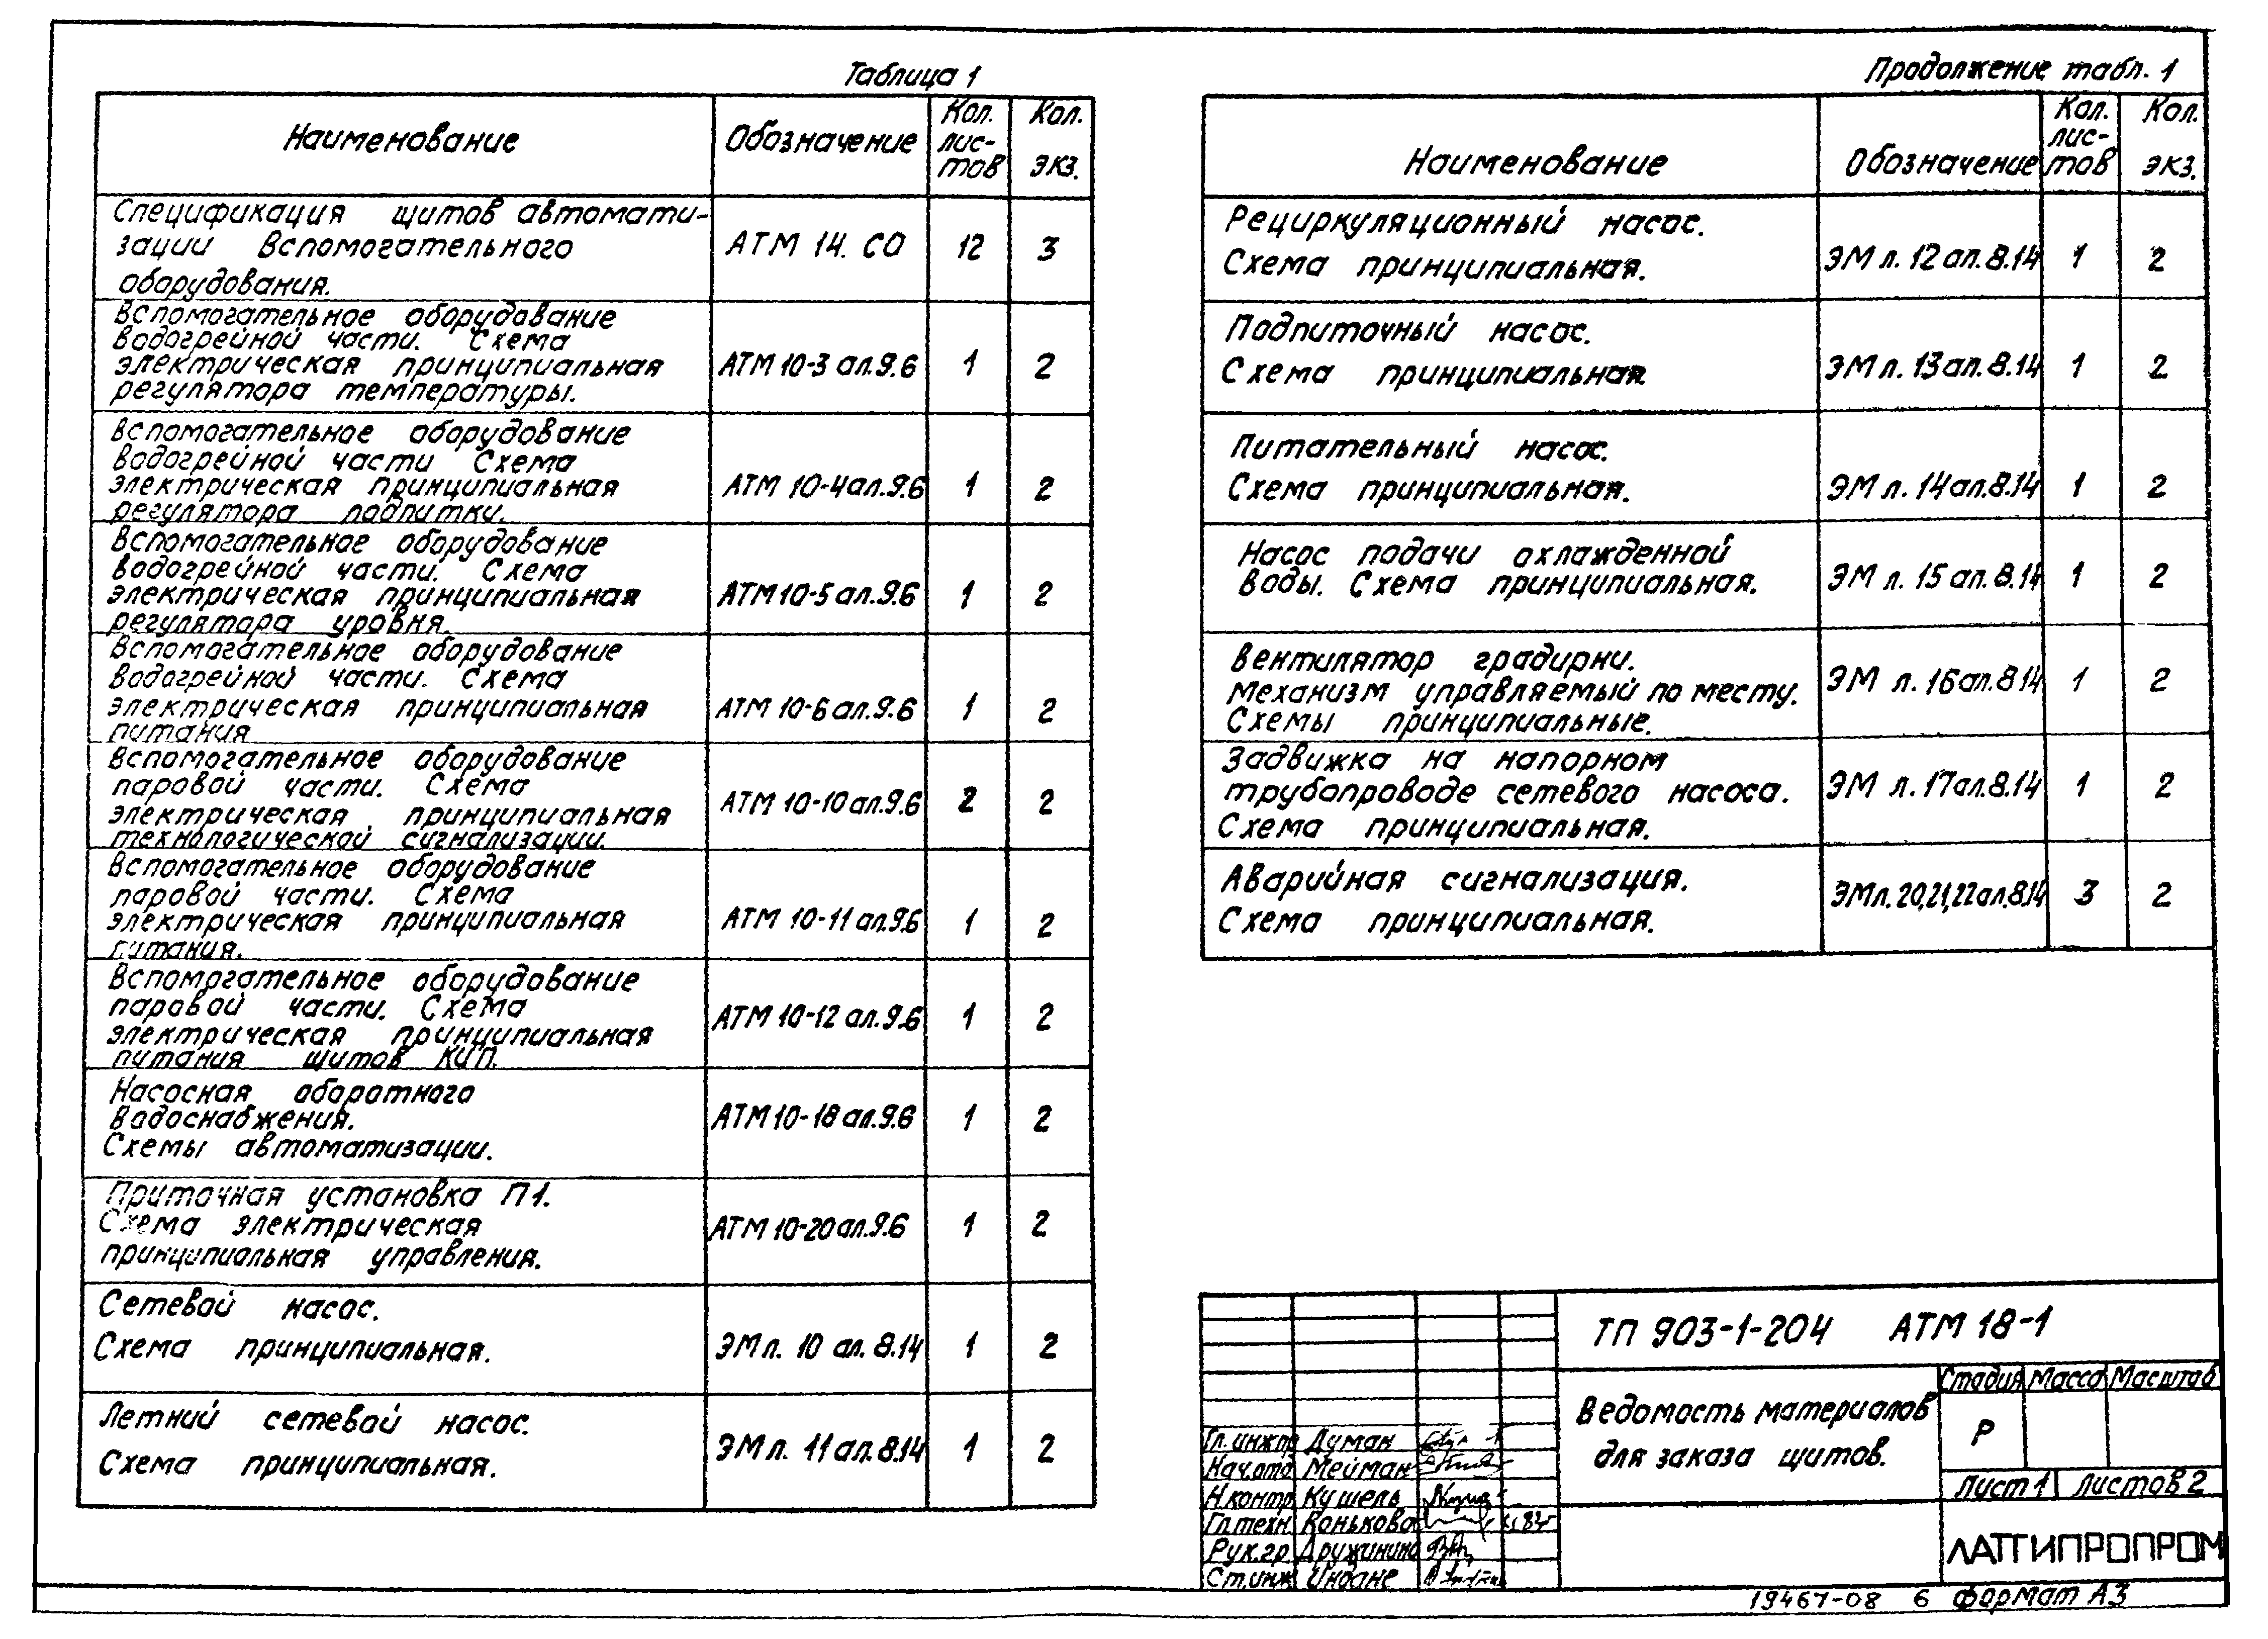 Таблица 1
Наименование Обозначение Кол. лис- тов Кол. экз.
Спецификация щитов автомати-
зации вспомогательного
оборудования.
АТМ 14. СО 12 3
Вспомогательное оборудование
водогрейной части. Схема
электрическая принципиальная
регулятора температуры.
АТМ 10-3 ал.9.6 1 2
Вспомогательное оборудование
водогрейной части Схема
электрическая принципиальная
регулятора подпитки.
АТМ 10-4 ал.9.6 1 2
Вспомогательное оборудование
водогрейной части. Схема
электрическая принципиальная
регулятора уровня.
АТМ 10-5 ал.9.6 1 2
Вспомогательное оборудование
водогрейной части. Схема
электрическая принципиальная
питания
АТМ 10-6 ал.9.6 1 2
Вспомогательное оборудование
паровой части. Схема
электрическая принципиальная
технологической сигнализации.
АТМ 10-10 ал.9.6 2 2
Вспомогательное оборудование
паровой части. Схема
электрическая принципиальная
питания.
АТМ 10-11 ал.9.6 1 2
Вспомогательное оборудование
паровой части. Схема
электрическая принципиальная
питания щитов КИП.
АТМ 10-12 ал.9.6 1 2
Насосная оборотного
водоснабжения.
Схемы автоматизации.
АТМ 10-18 ал.9.6 1 2
Приточная установка П1.
Схема электрическая
принципиальная управления.
АТМ 10-20 ал.9.6 1 2
Сетевой насос.
Схема принципиальная.
ЭМ л. 10 ал. 8.14 1 2
Летний сетевой насос.
Схема принципиальная.
ЭМ л. 11 ал. 8.14 1 2
Продолжение табл. 1
Наименование Обозначение Кол. лис- тов Кол. экз.
Рециркуляционный насос.
Схема принципиальная.
ЭМ л. 12 ал. 8.14 1 2
Подпиточный насос.
Схема принципиальная
ЭМ л. 13 ал. 8.14 1 2
Питательный насос.
Схема принципиальная.
ЭМ л. 14 ал. 8.14 1 2
Насос подачи охлажденной
воды. Схема принципиальная.
ЭМ л. 15 ал. 8.14 1 2
Вентилятор градирни.
Механизм управляемый по месту.
Схемы принципиальные.
ЭМ л. 16 ал. 8 14 1 2
Задвижка на напорном
трубопроводе сетевого насоса.
Схема принципиальная.
ЭМ л. 17 ал. 8.14 1 2
Аварийная сигнализация.
Схема принципиальная.
ЭМ л. 20,21,22 ал. 8.14 3 2
ТП 903-1-204 АТМ 18-1
Ведомость материалов
для заказа щитов.
Стадия Масса Масштаб
Р
Лист 1 Листов 2
ЛАТГИПРОПРОМ
Гл. инж пр Думан
Нач. отд Мейман
Н. контр. Кушель
Гл. техн. Конькова
Рук. гр. Дружинина
Ст. инж Индане
19467-08 6 Формат А3